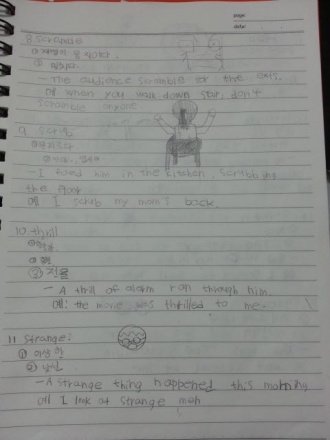 page:
date:
8. Scramble
- The audience scramble for the exit.
예 when you walk down stair, don't
scramble anyone
9. Scrub
① 문지르다
- I found him in the kitchen, scrubbing
the floor
예 I scrub my mom's back.
10. thrill
③ 전율
- A thrill of alarm run through him.
예: the movie was thrilled to me.
11 strange:
① 이상한
② 낯선
- A strange thing happened this morning
예 I look at strange man